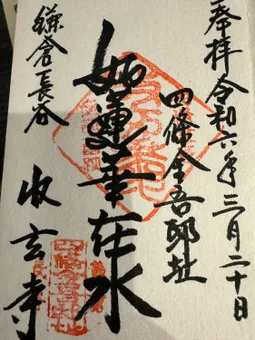 奉拝 令和六年三月二十日
四條金吾邸址
如蓮華在水
鎌倉長谷
收玄寺